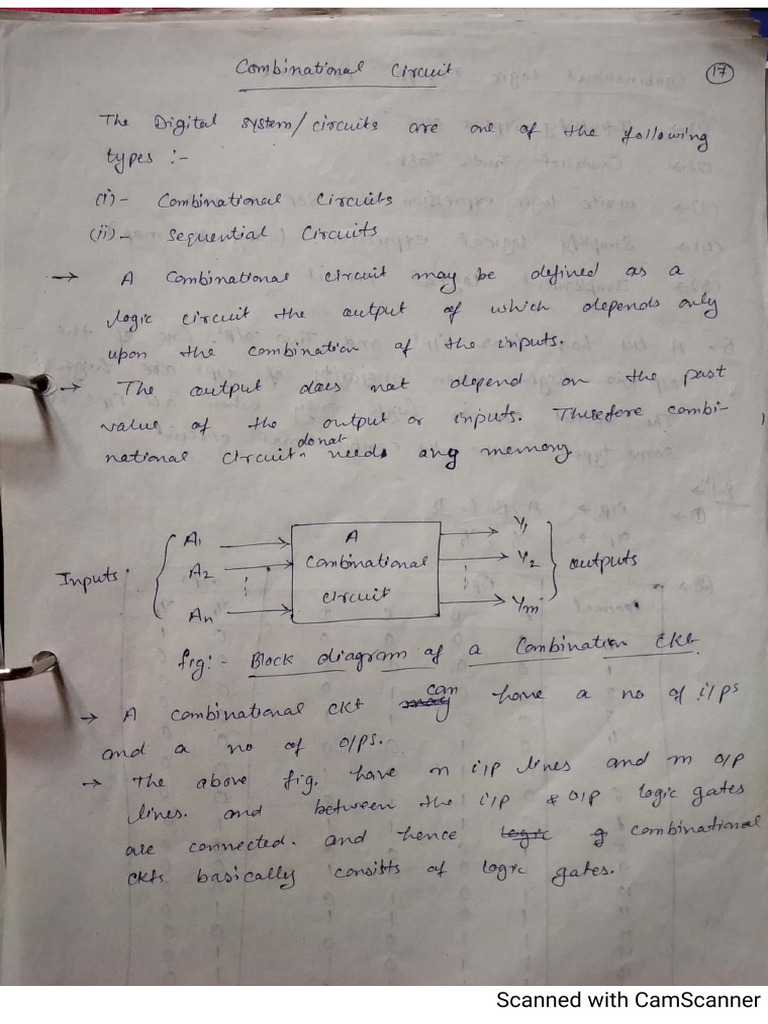 Combinational Circuit
17
The Digital system/circuits are one of the following
types :-
(i)- Combinational Circuits
(ii)- Sequential Circuits
→ A combinational circuit may be defined as a
logic circuit the output of which depends only
upon the combination of the inputs.
→ The output does not depend on the past
value of the output or inputs. Therefore combi-
national circuit do not needs any memory.
Inputs
A1
A2
An
A
Combinational
circuit
Y1
Y2
Ym
outputs
fig:- Block diagram of a Combination CKt.
→ A combinational CKt can have a no of i/ps
and a no of o/ps.
→ The above fig. have n i/p lines and m o/p
lines. and between the i/p & o/p logic gates
are connected. and hence combinational
CKts basically consists of logic gates.
Scanned with CamScanner